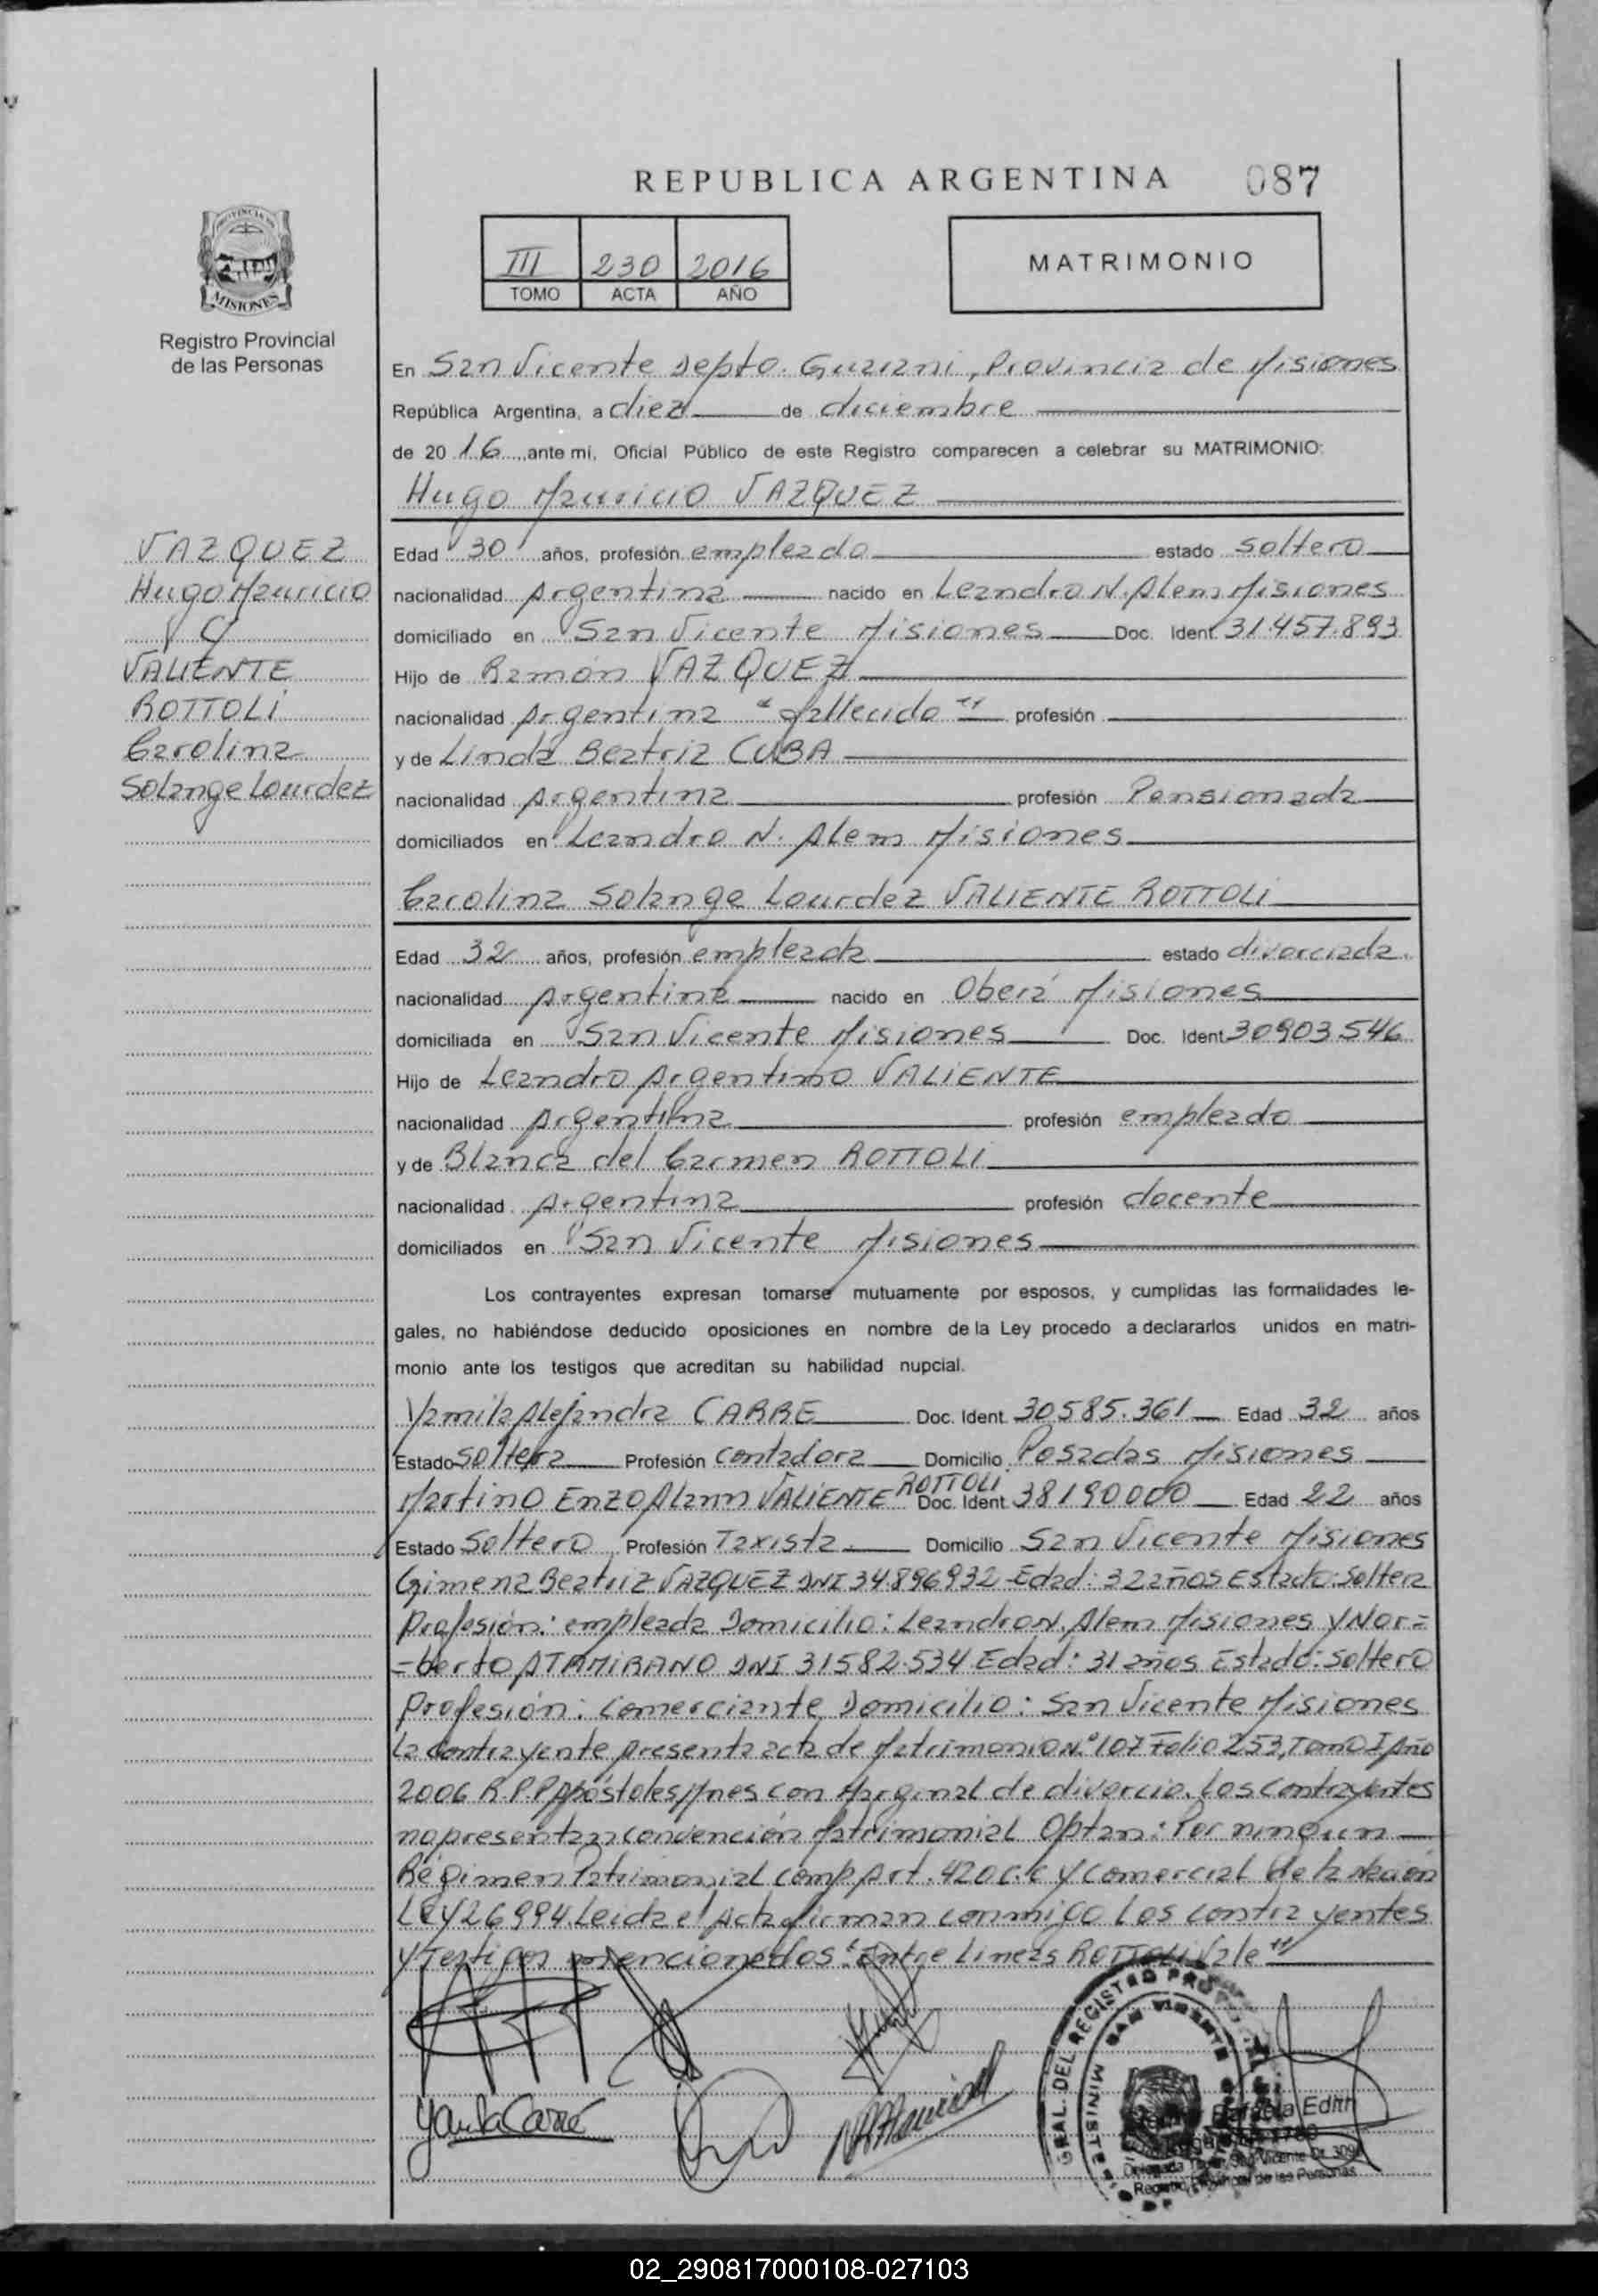 REPUBLICA ARGENTINA 087
III 230 2016
TOMO ACTA AÑO
MATRIMONIO
PROVINCIA DE
MISIONES
Registro Provincial
de las Personas
En San Vicente Depto. Guarani, Provincia de Misiones
República Argentina, a diez de diciembre
de 20 16 ante mi, Oficial Público de este Registro comparecen a celebrar su MATRIMONIO:
Hugo Mauricio VAZQUEZ
VAZQUEZ
Hugo Mauricio
y
VALIENTE
ROTTOLI
Carolina
Solange Lourdez
Edad 30 años, profesión empleado estado soltero
nacionalidad Argentina nacido en Leandro N. Alem Misiones
domiciliado en San Vicente Misiones Doc. Ident. 31.457.893
Hijo de Ramón VAZQUEZ
nacionalidad Argentina "fallecido" profesión
y de Linda Beatriz CUBA
nacionalidad Argentina profesión Pensionada
domiciliados en Leandro N. Alem Misiones
Carolina Solange Lourdez VALIENTE ROTTOLI
Edad 32 años, profesión empleada estado divorciada.
nacionalidad Argentina nacido en Oberá Misiones
domiciliada en San Vicente Misiones Doc. Ident. 30903.546
Hijo de Leandro Argentino VALIENTE
nacionalidad Argentina profesión empleado
y de Blanca del Carmen ROTTOLI
nacionalidad Argentina profesión docente
domiciliados en San Vicente Misiones
Los contrayentes expresan tomarse mutuamente por esposos, y cumplidas las formalidades le-
gales, no habiéndose deducido oposiciones en nombre de la Ley procedo a declararlos unidos en matri-
monio ante los testigos que acreditan su habilidad nupcial.
Yamila Alejandra CARRE Doc. Ident. 30.585.361 Edad 32 años
Estado soltera Profesión contadora Domicilio Posadas Misiones
ROTTOLI
Martino Enzo Alann VALIENTE Doc. Ident. 38190000 Edad 22 años
Estado Soltero Profesión Taxista Domicilio San Vicente Misiones
Gimena Beatriz VAZQUEZ DNI 34.896932 Edad: 32 años Estado: Soltera
Profesión: empleada Domicilio: Leandro N. Alem Misiones y Nor=
=berto ATAMIRANO DNI 31582.534 Edad: 31 años Estado: Soltero
Profesión: Comerciante Domicilio: San Vicente Misiones
La contrayente presenta acta de Matrimonio N.º 107 Folio 253, Tomo I Año
2006 R.P.P Apóstoles Mnes con Marginal de divorcio. Los contrayentes
no presentan convención Matrimonial Optan: Por ningun
Régimen Patrimonial comp Art. 420 C.C y Comercial de la Nación
LEY 26994. Leida el Acta firman conmigo los contrayentes
y Testigos mencionados "Entre Lineas ROTTOLI Vale"
Yamila Carré
GRAL. DEL REGISTRO PROV
SAN VICENTE
MINISTE
Rafaela Edith
Registro Provincial de las Personas
02_290817000108-027103